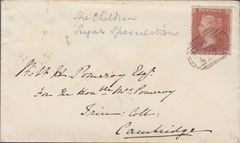 The Children
Sugar Speculation
Pomeroy Esq.
For the Honble Mrs Pomeroy
Trin: Coll:
Cambridge